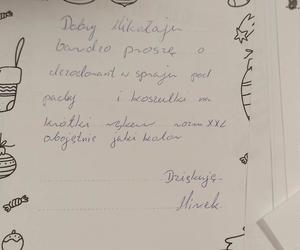 Dobry Mikołaju
bardzo proszę o
dezodorant w spraju pod
pachy i koszulka na
krótki rękaw rozm XXL
obojętnie jaki kolor
Dziękuję.
Mirek.